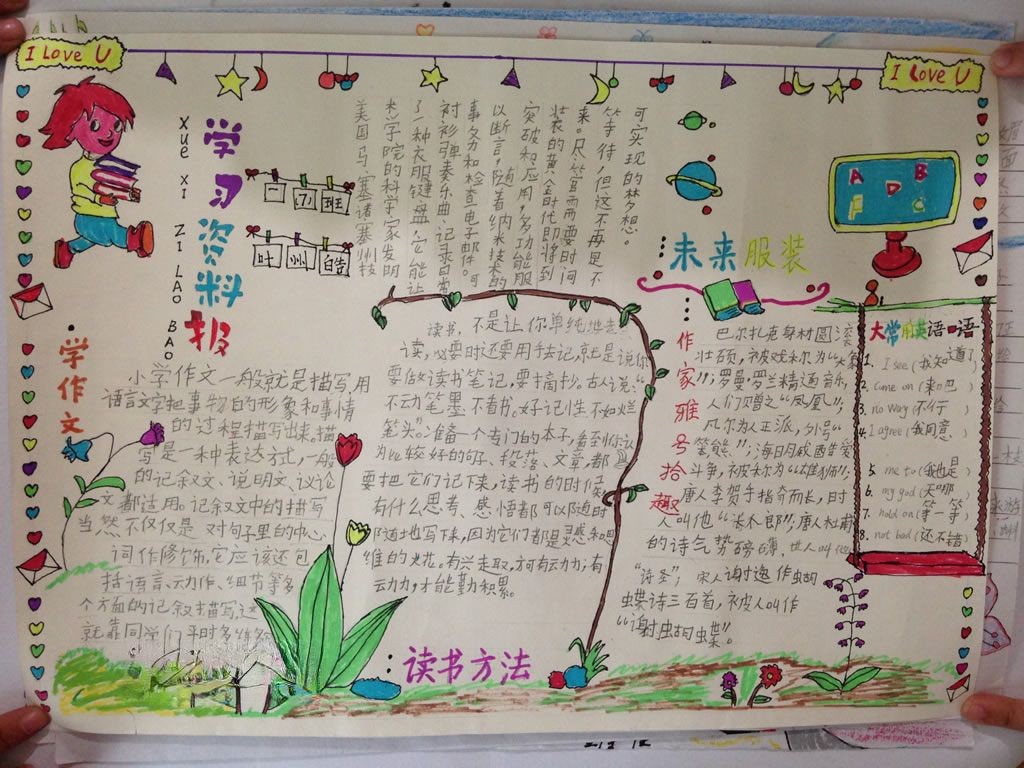 I Love U
I Love U
学习资料报
XUE XI ZI LAO BAO
一(7)班
叶州皓
美国马塞诸塞州技
术学院的科学家发明
了一种衣服键盘,它能让
衬衫弹奏乐曲、记录日常
事务和检查电子邮件。可
以断言,随着纳米技术的
突破和应用,多功能服
装的黄金时代即将到
来。尽管画画要时间
等待,但这不再是不
可实现的梦想。
未来服装
A B
D
F C
学作文
小学作文一般就是描写,用
语言文字把事物的形象和事情
的过程描写出来。描
写是一种表达方式,一般
的记叙文、说明文、议论
文都适用。记叙文中的描写
当然不仅仅是对句子里的中心
词作修饰,它应该还包
括语言、动作、细节等多
个方面的记叙描写,这
就靠同学们平时多练
读书,不是让你单纯地去
读,必要时还要用手去记,就是说你
要做读书笔记,要摘抄。古人说:“
不动笔墨不看书。好记性不如烂
笔头”。准备一个专门的本子,看到你认
为比较好的句子、段落、文章,都
要把它们记下来,读书的时候
有什么思考、感悟都可以随时
随地写下来,因为它们都是灵感和思
维的火花。有兴走取,才何有云力力;有
云力力,才能勤积累。
读书方法
作家雅号拾趣
巴尔扎克身材圆滚
壮硕,被戏称为“
”;罗曼·罗兰精通音乐,
人们赠之“凤凰”;
凡尔为人正派,外号“
笨熊”;海日月威酷爱
斗争,被称为“雄狮”;
唐人李贺手指奇而长,时
人叫他“长爪郎”;唐人杜甫
的诗气势磅礴,世人叫他
“诗圣”;宋人谢逸作蝴
蝶诗三百首,被人叫作
“谢蝴蝶”。
大常用英语口语
1. I see (我知道了)
2. come on (来吧)
3. no way (不行)
4. I agree (我同意)
5. me to (我也是)
6. my god (天哪)
7. hold on (等一等)
8. not bad (还不错)